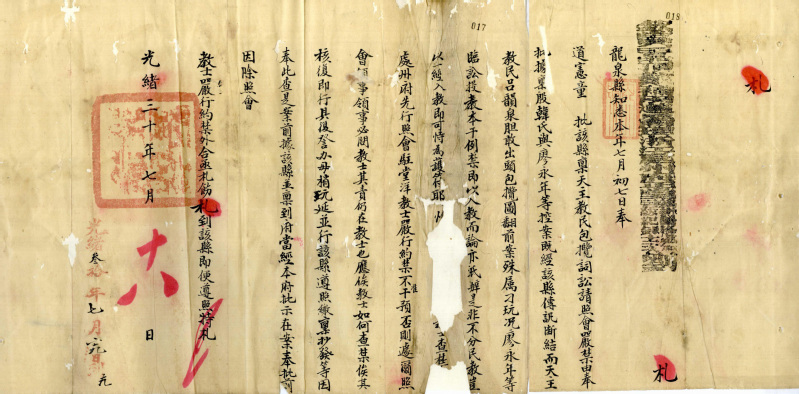 018
017
札
札
龍泉縣知悉本年七月初七日奉
道憲童 批該縣稟天主教民包攬詞訟請照會嚴禁由奉
批據稟殷韓氏與廖永年等控案既經該縣傳訊斷結而天主
教民呂韻泉胆敢出頭包攬圖翻前案殊属刁玩况廖永年等
臨訟投教本干例禁即以入教而論亦祇辨是非不分民教豈
以一經入教即可恃為護符耶 查禁
處州府先行照會駐堂洋教士嚴行約禁不准干預否則遽爾照
會領事領事必問教士其責仍在教士也應俟教士如何查禁俟其
核復即行具復詧办毋稍玩延並行該縣遵照繳稟抄發等因
奉此查是案前據該縣並稟到府當經本府批示在案奉批前
因除照會
教士嚴行約禁外合亟札飭札到該縣即便遵照特札
光緒三十年七月十八日
光緒叁拾年七月 元